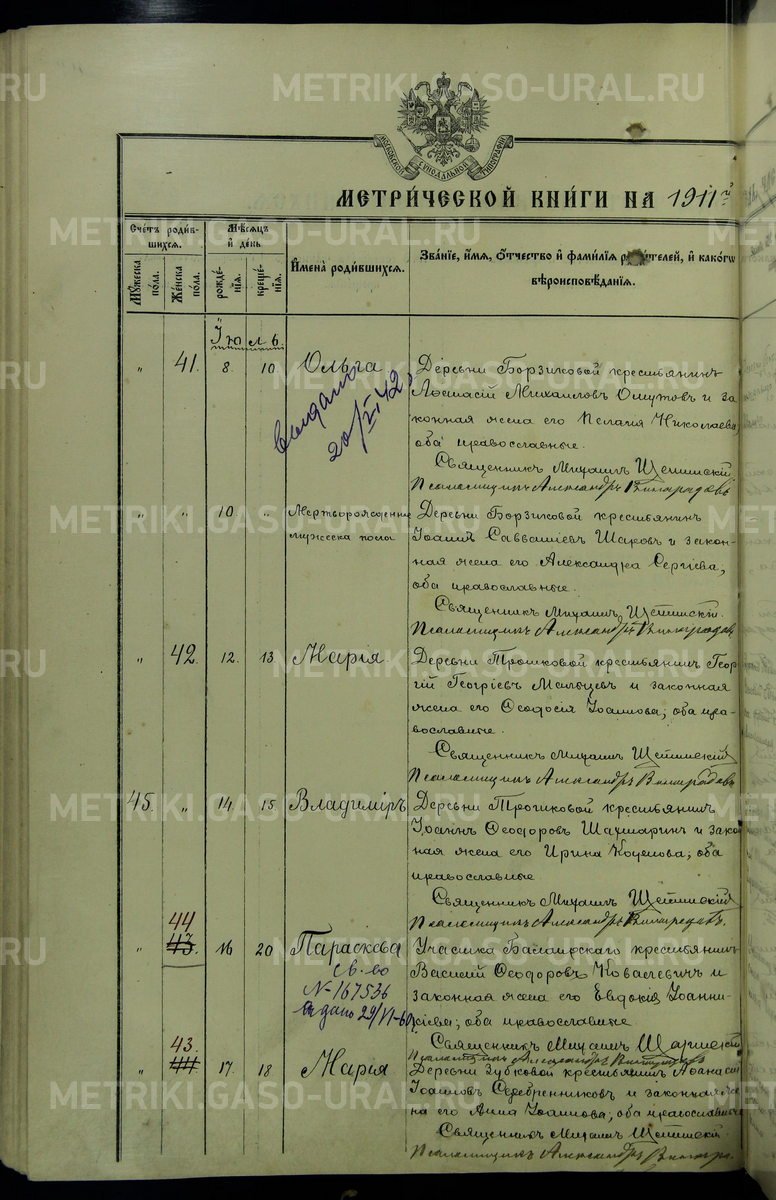 МОСКОВСКОЙ СѴНОДАЛЬНОЙ ТИПОГРАФІИ
МЕТРИ́ЧЕСКОЙ КНИ́ГИ НА 1911 й
Сче́тъ роди́вшихся.
Му́жеска по́ла.
Же́нска по́ла.
Мѣ́сяцъ и҆ де́нь
рожде́нїѧ.
креще́нїѧ.
И҆мена̀ роди́вшихся.
Зва́нїе, и҆́мѧ, ѻ҆́тчество и҆ фами́лїѧ роди́телей, и҆ како́гѡ
вѣроисповѣ́данїѧ.
Іюль.
„ 41. 8. 10. Ольга
Выдано
20/VI 42
Деревни Борзиковой крестьянинъ
Афанасій Михаиловъ Омутовъ и за
конная жена его Пелагія Николаева,
оба православные.
Священникъ Михаилъ
Псаломщикъ Александръ Виноградовъ
„ „ 10. „ Мертворожденный
мужеска пола
Деревни Борзиковой крестьянинъ
Іоаннъ Савватіевъ Шаровъ и закон-
ная жена его Александра Сергіева,
оба православные.
Священникъ Михаилъ
Псаломщикъ Александръ Виноградовъ
„ 42. 12. 13. Марія
Деревни Трошковой крестьянинъ Геор
гій Георгіевъ Мальцевъ и законная
жена его Феодосія Іоаннова, оба пра-
вославные.
Священникъ Михаилъ
Псаломщикъ Александръ Виноградовъ
45. „ 14. 15. Владиміръ
Деревни Трошковой крестьянинъ
Іоаннъ Феодоровъ и закон
ная жена его Ирина Космова, оба
православные
Священникъ Михаилъ
Псаломщикъ Александръ Виноградовъ.
44
„ 43. 16 20 Параскева
св-во
N-167536
выдано 29/VI-60
Участка Балаирскаго крестьянинъ
Василій Феодоровъ Ковалевичъ и
законная жена его Евдокія Іоанни-
кіева, оба православные
Священникъ Михаилъ
Псаломщикъ Александръ
43.
„ 44 17. 18 Марія
Деревни Зубковой крестьянинъ Афанасій
Іоанновъ Серебренниковъ и законная же
на его Анна Іоаннова, оба православные
Священникъ Михаилъ
Псаломщикъ Александръ
METRIKI.GASO-URAL.RU